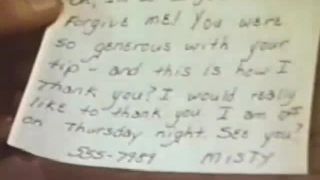 Forgive me! You were
so generous with your
tip - and this is how I
thank you? I would really
like to thank you. I am off
on Thursday night. See you?
555-7959 MISTY